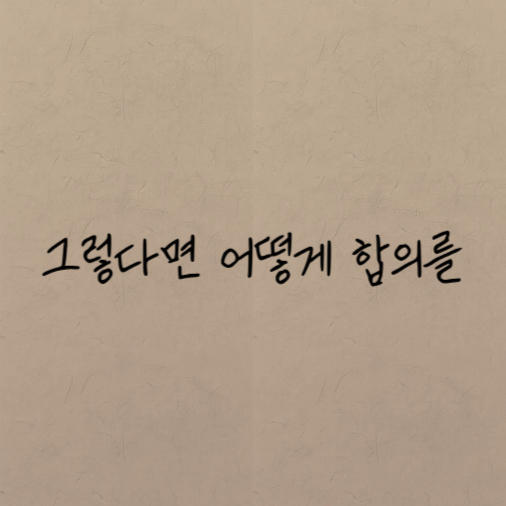 그렇다면 어떻게 합의를